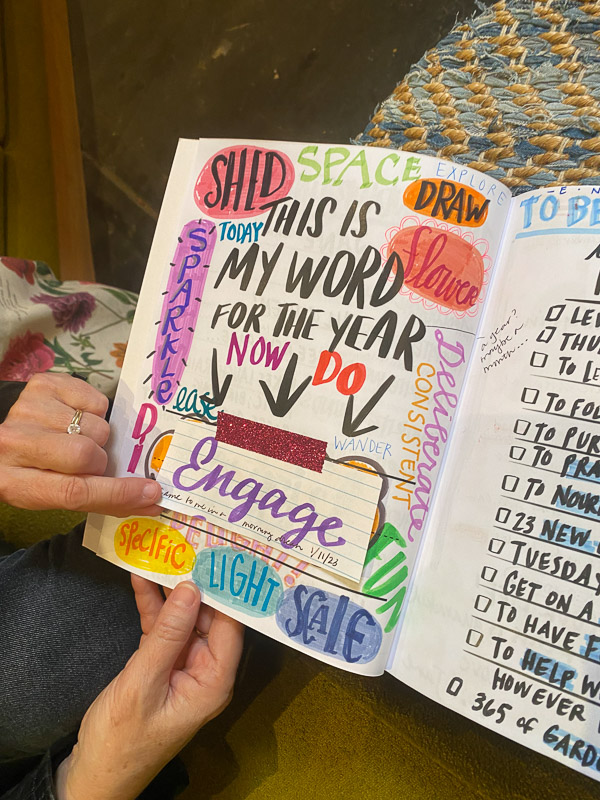 SHED
SPACE
EXPLORE
DRAW
TODAY
THIS IS
MY WORD
FOR THE YEAR
flower
SPARKLE
NOW
DO
ease
WANDER
CONSISTENT
Deliberate
Engage
came to me in a morning dream 1/11/23
SPECIFIC
LIGHT
SCALE
FUN
TO BE
a year?
maybe a
mmm...
TO
TO FO
TO PUR
TO PRA
TO NOUR
23 NEW
TUESDAY
GET ON A
TO HAVE F
TO HELP W
HOWEVER
365 of GARD